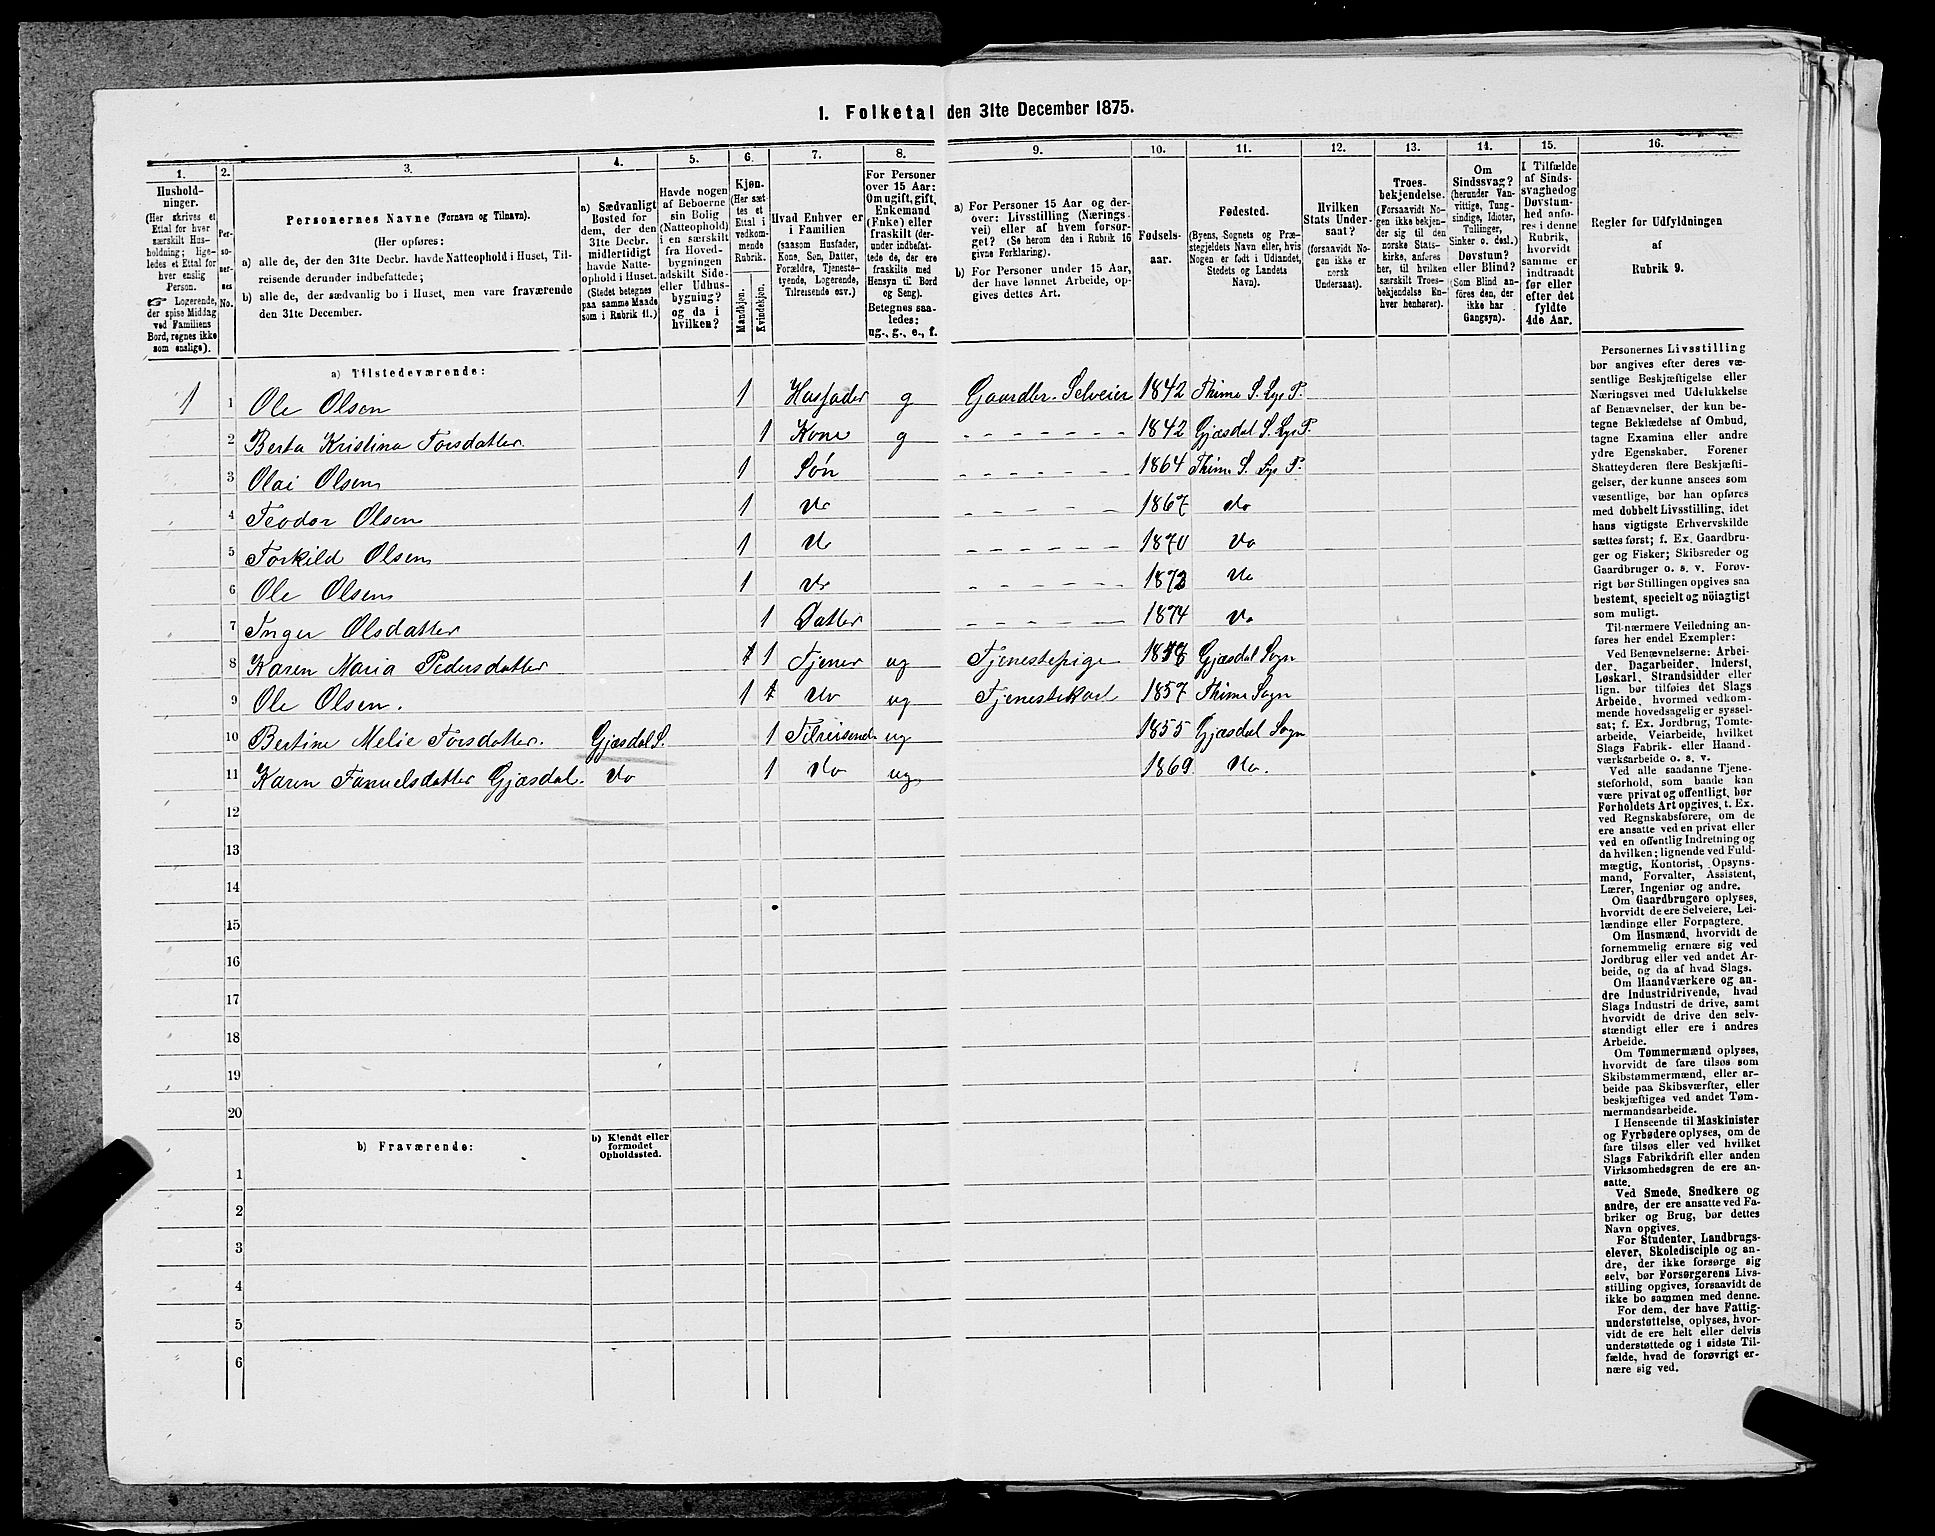 1. Folketal den 31te December 1875.
1.
Hushold-
ninger.
(Her skrives et
Ettal for hver
særskilt Hus-
holdning; lige-
ledes et Ettal for
hver enslig
Person.
☞ Logerende,
der spise Middag
ved Familiens
Bord, regnes ikke
som enslige).
2.
Per-
so-
ner-
nes
No.
3.
Personernes Navne (Fornavn og Tilnavn).
(Her opføres:
a) alle de, der den 31te Decbr. havde Natteophold i Huset, Til-
reisende derunder indbefattede;
b) alle de, der sædvanlig bo i Huset, men vare fraværende
den 31te December.
4.
a) Sædvanligt
Bosted for
dem, der den
31te Decbr.
midlertidigt
havde Natte-
ophold i Huset.
(Stedet betegnes
paa samme Maade
som i Rubrik 11.)
5.
Havde nogen
af Beboerne
sin Bolig
(Natteophold)
i en særskilt
fra Hoved-
bygningen
adskilt Side-
eller Udhus-
bygning?
og da i
hvilken?
6.
Kjøn.
(Her sæt-
tes et
Ettal i
vedkom-
mende
Rubrik.
Mandkjøn.
Kvindekjøn.
7.
Hvad Enhver er
i Familien
(saasom Husfader,
Kone, Søn, Datter,
Forældre, Tjeneste-
tyende, Logerende,
Tilreisende osv.)
8.
For Personer
over 15 Aar:
Om ugift, gift,
Enkemand
(Enke) eller
fraskilt (der-
under indbefat-
tede de, der ere
fraskilte med
Hensyn til Bord
og Seng).
Betegnes saa-
ledes:
ug., g., e., f.
9.
a) For Personer 15 Aar og der-
over: Livsstilling (Nærings-
vei) eller af hvem forsør-
get? (Se herom den i Rubrik 16
givne Forklaring).
b) For Personer under 15 Aar,
der have lønnet Arbeide, op-
gives dettes Art.
10.
Fødsels-
aar.
11.
Fødested.
(Byens, Sognets og Præ-
stegjeldets Navn eller, hvis
Nogen er født i Udlandet,
Stedets og Landets
Navn).
12.
Hvilken
Stats Under-
saat?
(forsaavidt No-
gen ikke er
norsk
Undersaat).
13.
Troes-
bekjendelse.
(Forsaavidt No-
gen ikke bekjen-
der sig til den
norske Stats-
kirke, anføres
her, til hvilken
særskilt Troes-
bekjendelse En-
hver henhører).
14.
Om
Sindssvag?
(herunder Van-
vittige, Tung-
sindige, Idioter,
Tullinger,
Sinker o. desl.)
Døvstum?
eller Blind?
(Som Blind an-
føres den, der
ikke har
Gangsyn).
15.
I Tilfælde
af Sinds-
svaghedog
Døvstum-
hed anfø-
res i denne
Rubrik,
hvorvidt
samme er
indtraadt
før eller
efter det
fyldte
4de Aar.
16.
Regler for Udfyldningen
af
Rubrik 9.
a) Tilstedeværende:
1 1 Ole Olsen 1 Husfader g Gaardbr. Selveier 1842 Thime S. Lye P.
2 Berta Kristina Torsdatter 1 Kone g - - - - - - - 1842 Gjæsdal S. Lye P.
3 Olai Olsen 1 Søn - - - - - - - 1864 Thime S. Lye P.
4 Teodor Olsen 1 Do - - - - - - - 1867 do
5 Torkild Olsen 1 Do - - - - - - - 1870 Do
6 Ole Olsen 1 Do - - - - - - - 1872 Do
7 Inger Olsdatter 1 Datter - - - - - - - 1874 Do
8 Karen Maria Pedersdatter 1 Tjener ug Tjenestepige Gjæsdal Sogn
9 Ole Olsen. 1 Do ug Tjenestekarl 1857 Thime Sogn
10 Bertine Melie Torsdatter. Gjæsdal S. 1 Tilreisende ug 1855 Gjæsdal Sogn
11 Karen Gjæsdal. Do 1 Do ug 1869 Do.
12
13
14
15
16
17
18
19
20
b) Fraværende:
b) Kjendt eller
formodet
Opholdssted.
1
2
3
4
5
6
Personernes Livsstilling
bør angives efter deres væ-
sentlige Beskjæftigelse eller
Næringsvei med Udelukkelse
af Benævnelser, der kun be-
tegne Beklædelse af Ombud,
tagne Examina eller andre
ydre Egenskaber. Forener
Skatteyderen flere Beskjæfti-
gelser, der kunne ansees som
væsentlige, bør han opføres
med dobbelt Livsstilling, idet
hans vigtigste Erhvervskilde
sættes først; f. Ex. Gaardbru-
ger og Fisker; Skibsreder og
Gaardbruger o. s. v. Forøv-
rigt bør Stillingen opgives saa
bestemt, specielt og nöiagtigt
som muligt.
Til nærmere Veiledning an-
føres her endel Exempler:
Ved Benævnelserne: Arbei-
der, Dagarbeider, Inderst,
Løskarl, Strandsidder eller
lign. bør tilføies det Slags
Arbeide, hvormed vedkom-
mende hovedsagelig er syssel-
sat; f. Ex. Jordbrug, Tomte-
arbeide, Veiarbeide, hvilket
Slags Fabrik- eller Haand-
værksarbeide o. s. v.
Ved alle saadanne Tjene-
steforhold, som baade kan
være privat og offentligt, bør
Forholdets Art opgives, t. Ex.
ved Regnskabsførere, om de
ere ansatte ved en privat eller
ved en offentlig Indretning og
da hvilken; lignende ved Fuld-
mægtig, Kontorist, Opsyns-
mand, Forvalter, Assistent,
Lærer, Ingeniør og andre.
Om Gaardbrugere oplyses,
hvorvidt de ere Selveiere, Lei-
lændinge eller Forpagtere.
Om Husmænd, hvorvidt de
fornemmelig ernære sig ved
Jordbrug eller ved andet Ar-
beide, og da af hvad Slags.
Om Haandværkere og an-
dre Industridrivende, hvad
Slags Industri de drive, samt
hvorvidt de drive den selv-
stændigt eller ere i andres
Arbeide.
Om Tømmermænd oplyses,
hvorvidt de fare tilsøs som
Skibstømmermænd, eller ar-
beide paa Skibsværfter, eller
beskjæftiges ved andet Tøm-
mermandsarbeide.
I Henseende til Maskinister
og Fyrbødere oplyses, om de
fare tilsøs eller ved hvilket
Slags Fabrikdrift eller anden
Virksomhedsgren de ere an-
satte.
Ved Smede, Snedkere og
andre, der ere ansatte ved Fa-
briker og Brug, bør dettes
Navn opgives.
For Studenter, Landbrugs-
elever, Skoledisciple og an-
dre, der ikke forsørge sig
selv, bør Forsørgerens Livs-
stilling opgives, forsaavidt de
ikke bo sammen med denne.
For dem, der have Fattig-
understøttelse, oplyses, hvor-
vidt de ere helt eller delvis
understøttede og i sidste Til-
fælde, hvad de forøvrigt er-
nære sig ved.